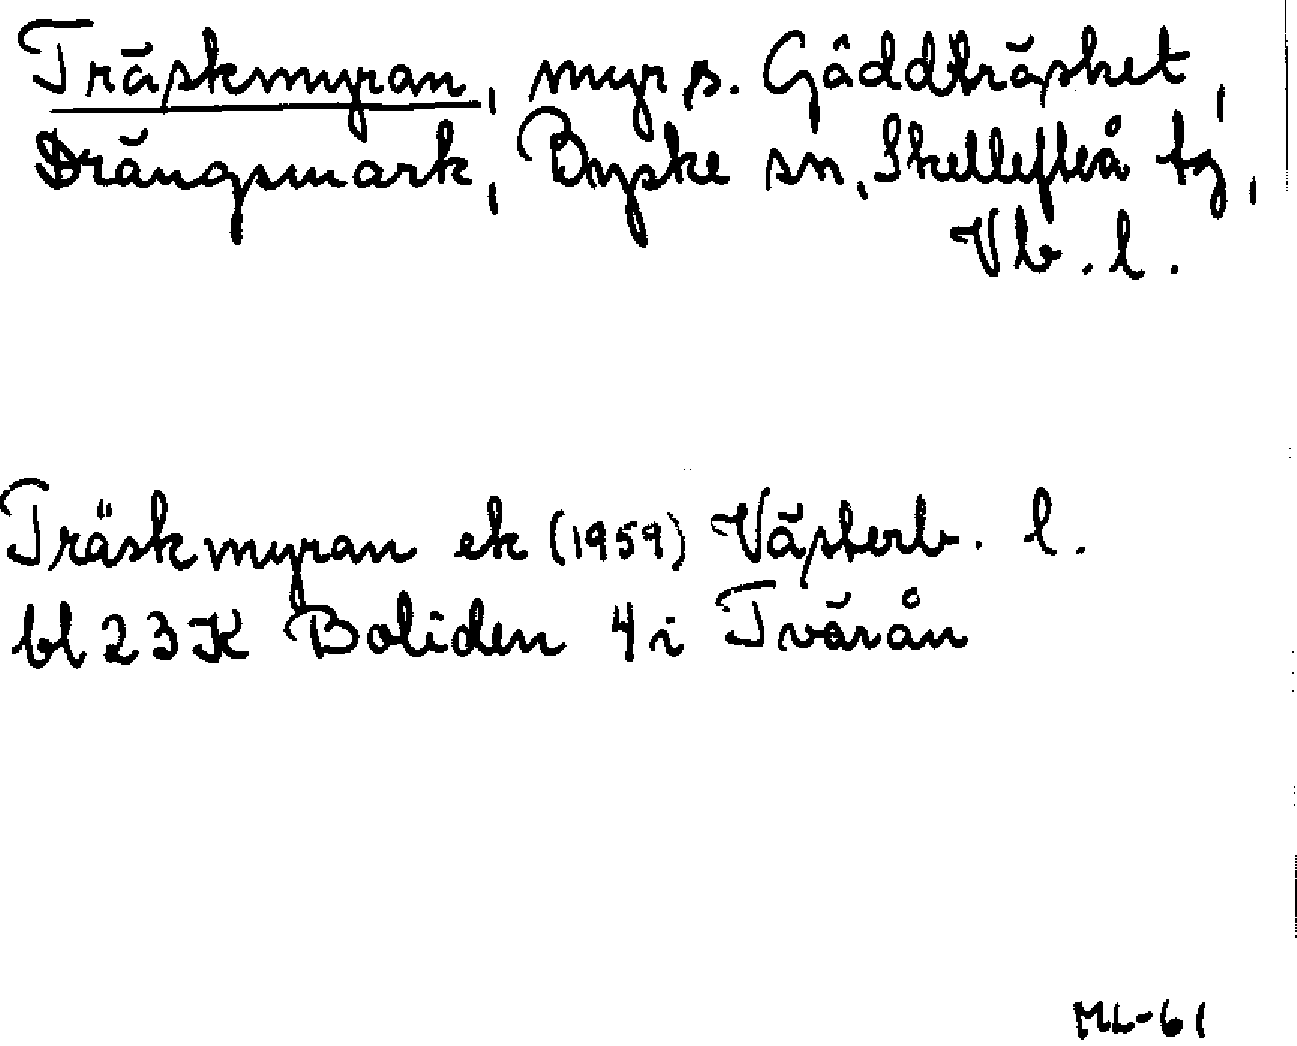 Träskmyran, myr s. Gäddträsket,
Drängsmark, Byske sn, Skellefteå tg,
Vb. l.
Träskmyran ek (1959) Västerb. l.
bl 23K Boliden 4i Tvärån
ML-61